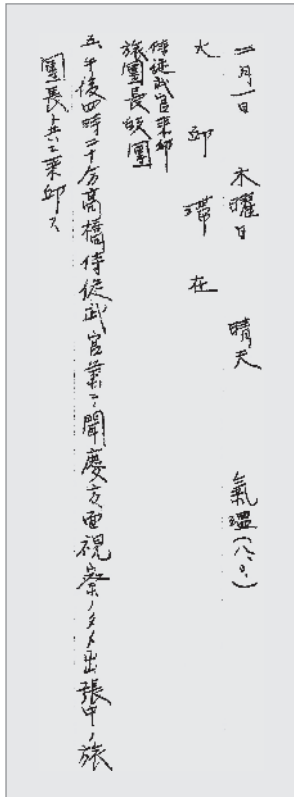 二月一日 木曜日 晴天 氣温(八.〇.)
大邱滞在
侍従武官来邱
旅團長皈團
五、午後四時二十分高橋侍従武官並ニ聞慶方面視察ノタメ出張中ノ旅
團長ト共ニ来邱ス